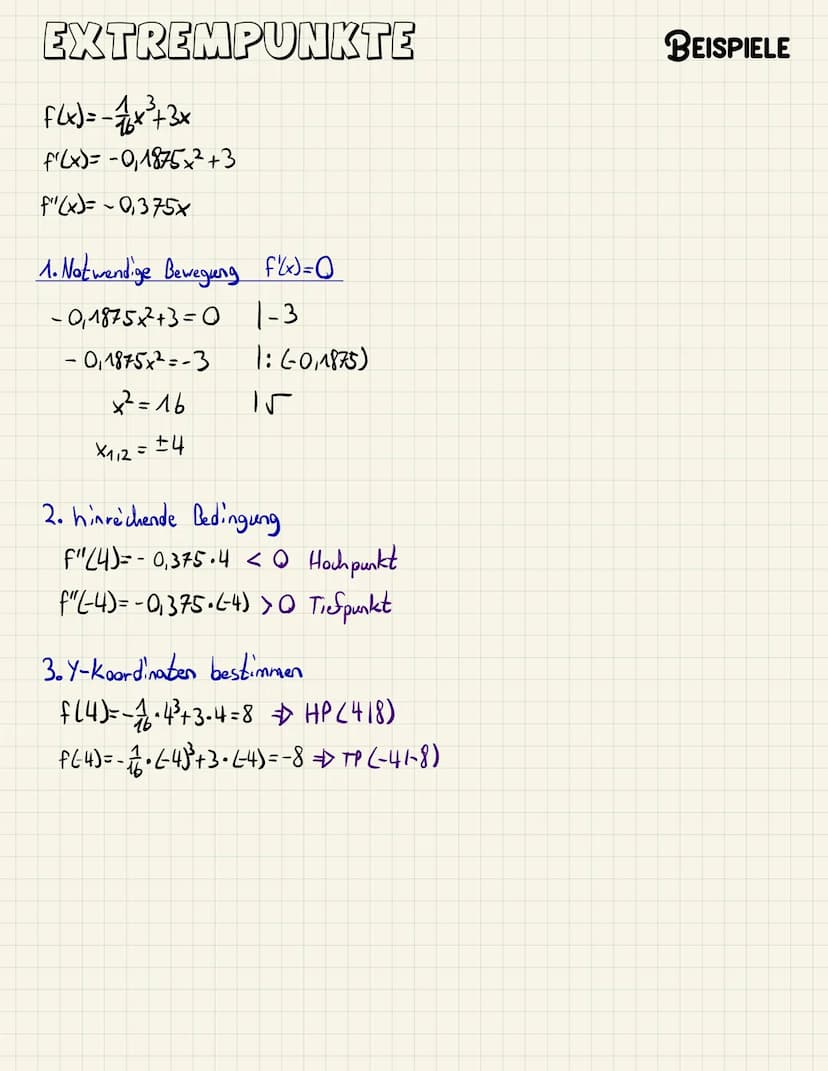 EXTREMPUNKTE
BEISPIELE
f(x)= -1/16x³+3x
f'(x)= -0,1875x²+3
f''(x)= -0,375x
1. Notwendige Bewegung f'(x)=0
-0,1875x²+3=0 |-3
-0,1875x²=-3 |:(-0,1875)
x²=16 |√
x₁,₂ = ±4
2. hinreichende Bedingung
f''(4)= -0,375·4 < 0 Hochpunkt
f''(-4)= -0,375·(-4) > 0 Tiefpunkt
3. Y-Koordinaten bestimmen
f(4)= -1/16·4³+3·4=8 ⇒ HP(4|8)
f(-4)= -1/16·(-4)³+3·(-4)=-8 ⇒ TP(-4|-8)